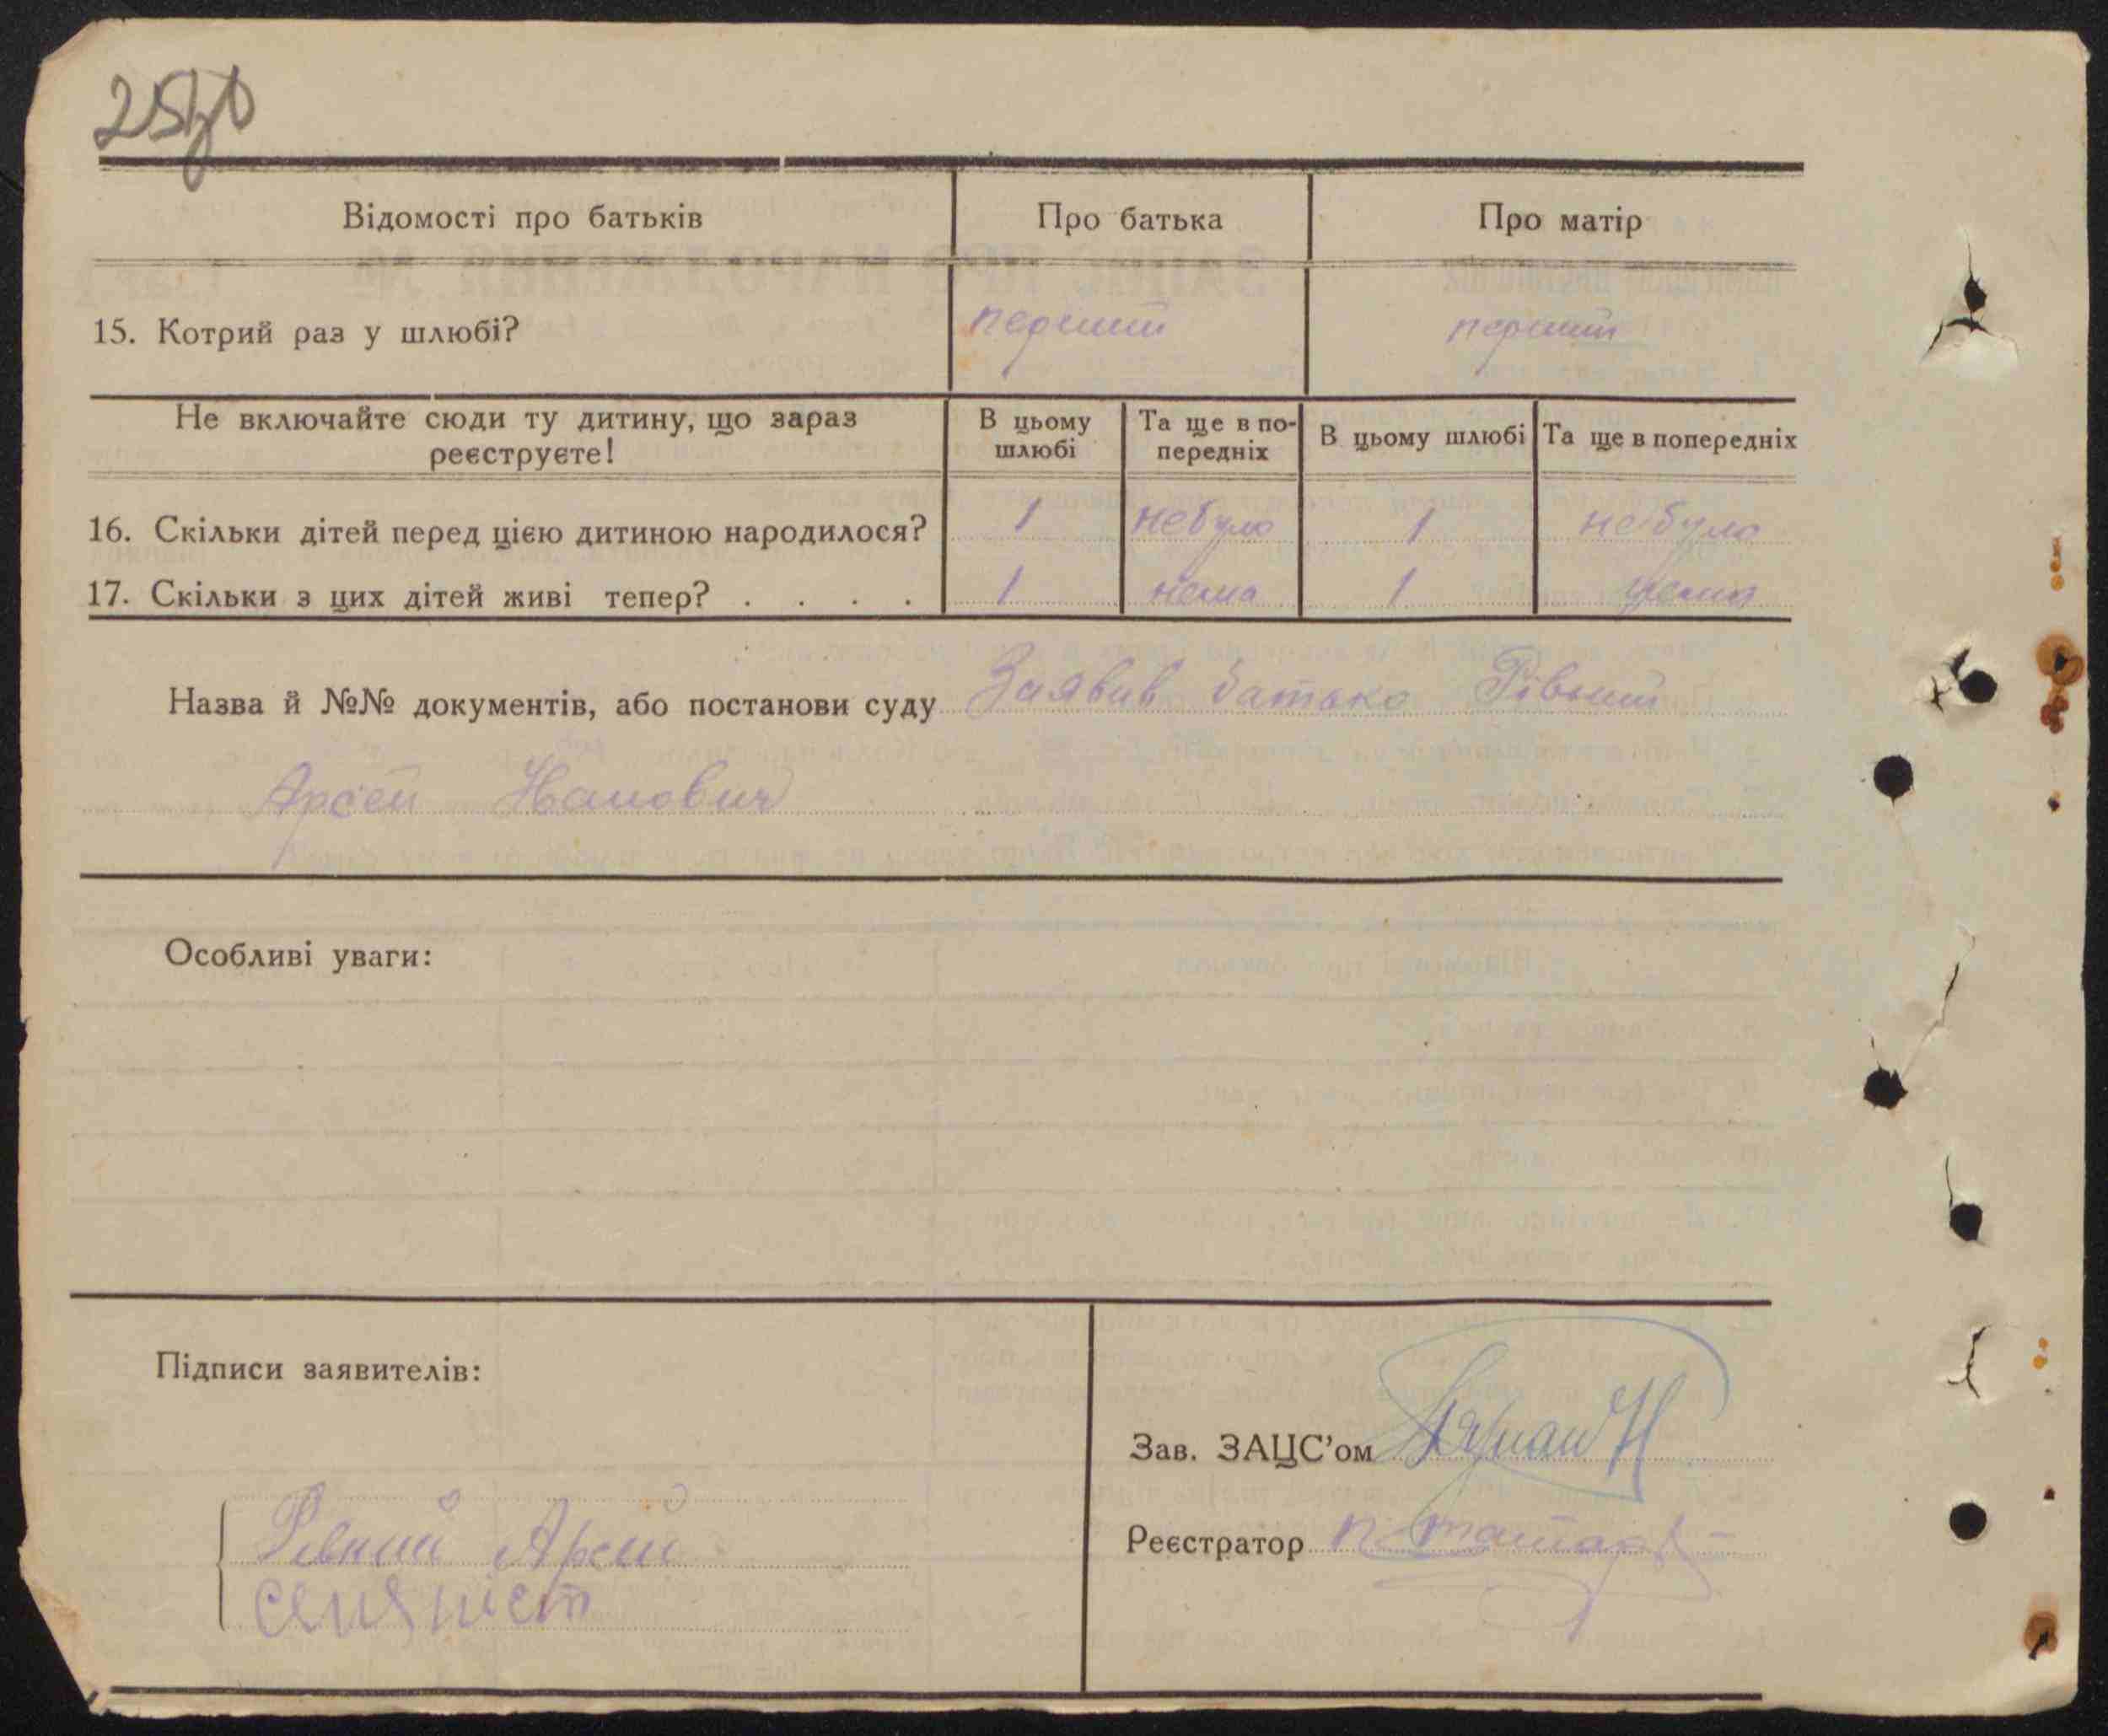 Відомості про батьків Про батька Про матір
15. Котрий раз у шлюбі? перший перший
Не включайте сюди ту дитину, що зараз реєструєте! В цьому шлюбі Та ще в попередніх В цьому шлюбі Та ще в попередніх
16. Скільки дітей перед цією дитиною народилося? 1 небуло 1 небуло
17. Скільки з цих дітей живі тепер? . . . . 1 нема 1 нема
Назва й №№ документів, або постанови суду Заявив батько Рівний
Арсей Иванович
Особливі уваги:
Підписи заявителів:
Зав. ЗАЦС'ом
Рівний Арсей
Реєстратор